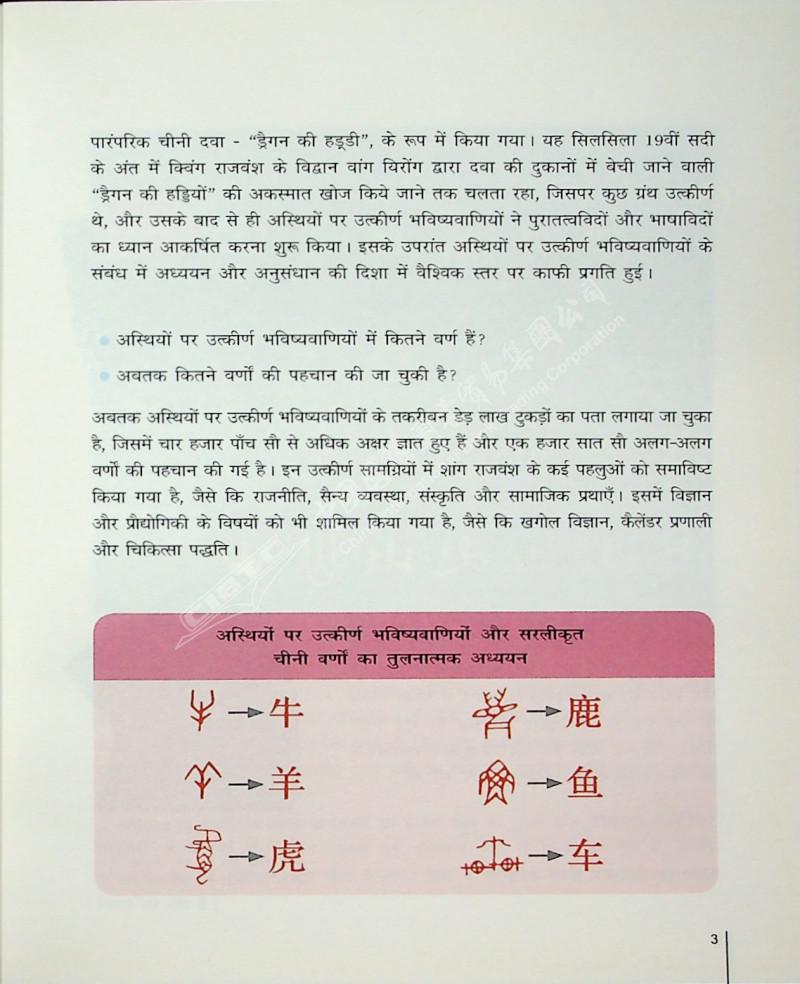 पारंपरिक चीनी दवा - “ड्रैगन की हड्डी”, के रूप में किया गया। यह सिलसिला 19वीं सदी
के अंत में क्विंग राजवंश के विद्वान वांग यिरोंग द्वारा दवा की दुकानों में बेची जाने वाली
“ड्रैगन की हड्डियों” की अकस्मात खोज किये जाने तक चलता रहा, जिसपर कुछ ग्रंथ उत्कीर्ण
थे, और उसके बाद से ही अस्थियों पर उत्कीर्ण भविष्यवाणियों ने पुरातत्वविदों और भाषाविदों
का ध्यान आकर्षित करना शुरू किया। इसके उपरांत अस्थियों पर उत्कीर्ण भविष्यवाणियों के
संबंध में अध्ययन और अनुसंधान की दिशा में वैश्विक स्तर पर काफी प्रगति हुई।
अस्थियों पर उत्कीर्ण भविष्यवाणियों में कितने वर्ण हैं?
अबतक कितने वर्णों की पहचान की जा चुकी है?
अबतक अस्थियों पर उत्कीर्ण भविष्यवाणियों के तकरीबन डेड़ लाख टुकड़ों का पता लगाया जा चुका
है, जिसमें चार हजार पाँच सौ से अधिक अक्षर ज्ञात हुए हैं और एक हजार सात सौ अलग-अलग
वर्णों की पहचान की गई है। इन उत्कीर्ण सामग्रियों में शांग राजवंश के कई पहलुओं को समाविष्ट
किया गया है, जैसे कि राजनीति, सैन्य व्यवस्था, संस्कृति और सामाजिक प्रथाएँ। इसमें विज्ञान
और प्रौद्योगिकी के विषयों को भी शामिल किया गया है, जैसे कि खगोल विज्ञान, कैलेंडर प्रणाली
और चिकित्सा पद्धति।
अस्थियों पर उत्कीर्ण भविष्यवाणियों और सरलीकृत
चीनी वर्णों का तुलनात्मक अध्ययन
牛 鹿
羊 鱼
虎 车
3